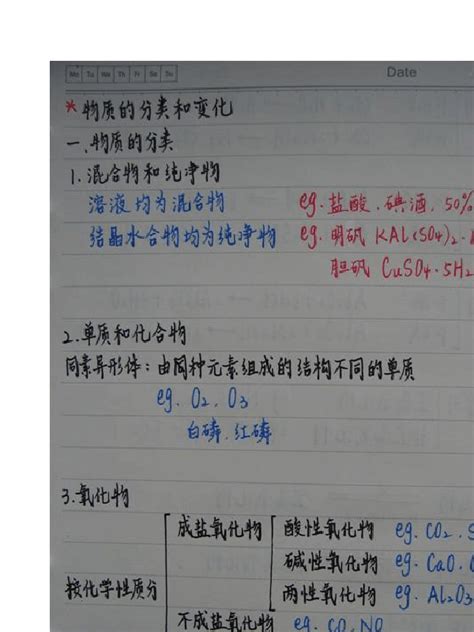 Mo Tu We Th Fr Sa Su
Date
*物质的分类和变化
一、物质的分类
1.混合物和纯净物
溶液均为混合物 eg.盐酸.碘酒.50%
结晶水合物均为纯净物 eg.明矾 KAl(SO4)2·
胆矾 CuSO4·5H2
2.单质和化合物
同素异形体:由同种元素组成的结构不同的单质
eg. O2. O3
白磷.红磷
3.氧化物
成盐氧化物 酸性氧化物 eg. CO2.
碱性氧化物 eg. CaO.
按化学性质分 两性氧化物 eg. Al2O3
不成盐氧化物 eg. CO. NO